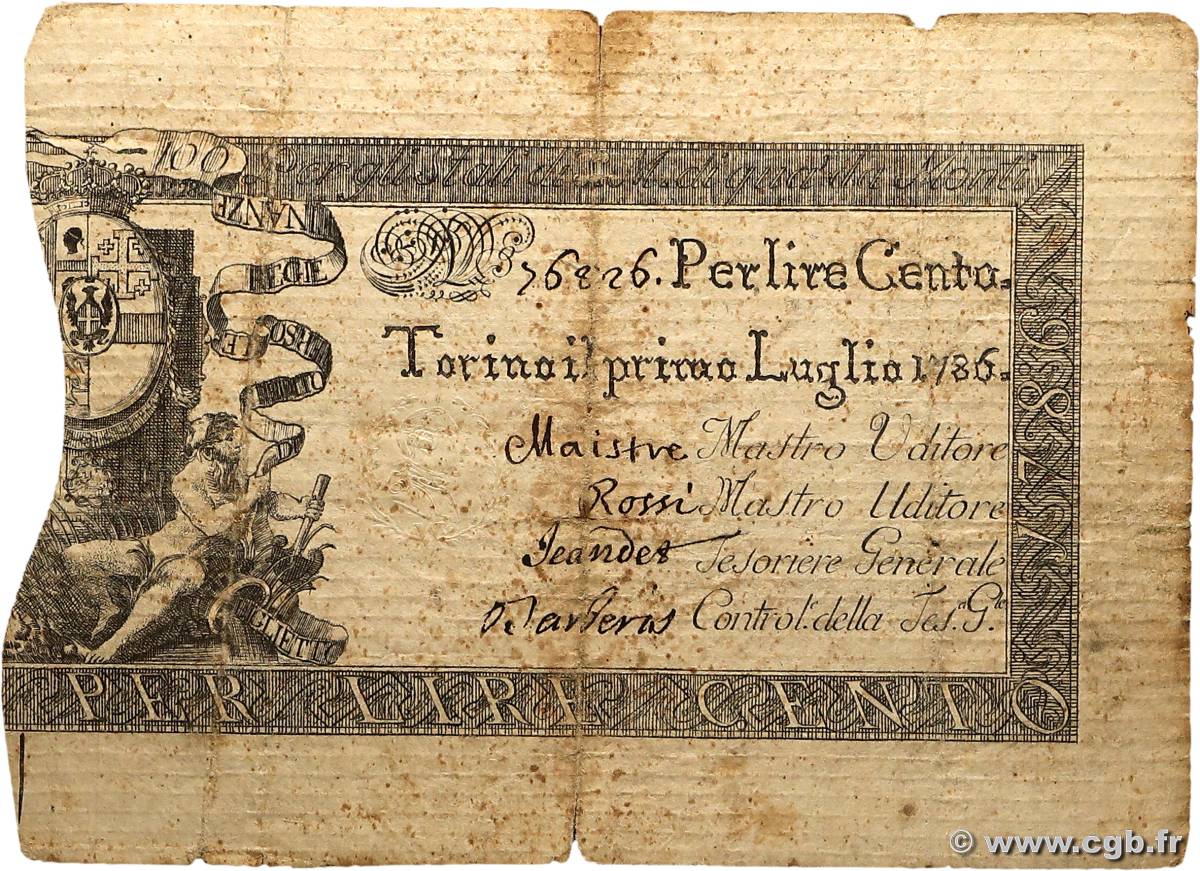 100 Per gli Stati di S. M. di qua da Monti
VANZE
REGIE
GLIETTO
76226. Per lire Cento.
Torino il primo Luglio 1786.
Maistre Mastro Uditore
Rossi Mastro Uditore
Jeandet Tesoriere Generale
Barberis Control.e della Tes.a G.le
1786
PER LIRE CENTO
© www.cgb.fr